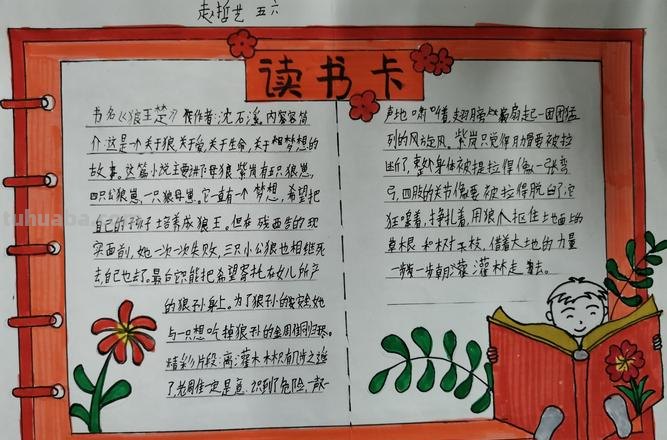 赵哲艺 五六
读书卡
书名《狼王梦》 作者:沈石溪 内容容简
介:这是一个关于狼,关于爱,关于生命,关于梦想的
故事。这篇小说主要讲了母狼紫岚有五只狼崽,
四只公狼崽,一只狼母崽。它一直有一个梦想,希望把
自己的孩子培养成狼王。但在残酷的现
实面前,她一次一次失败,三只小公狼也相继死
去,自己也去了。最后只能把希望寄托在女儿的产
的狼孙身上。为了狼孙的安全她
与一只想吃掉狼孙的金雕同归于尽。
精彩片段:离灌木林只有几步之遥
了,老雕一定是意识到了危险,一声
声地啸着,翅膀扇起一团团猛
列的风旋风。紫岚只觉得月滑要被拉
断了,整个身体被提拉得像一张弯
弓,四肢的关节像要被拉得脱臼了,它
狂嚎着,挣扎着,用狼爪抠住土地面上的
草根和树枝,借着大地的力量
一步一步朝灌灌林走去。
tuhuaba